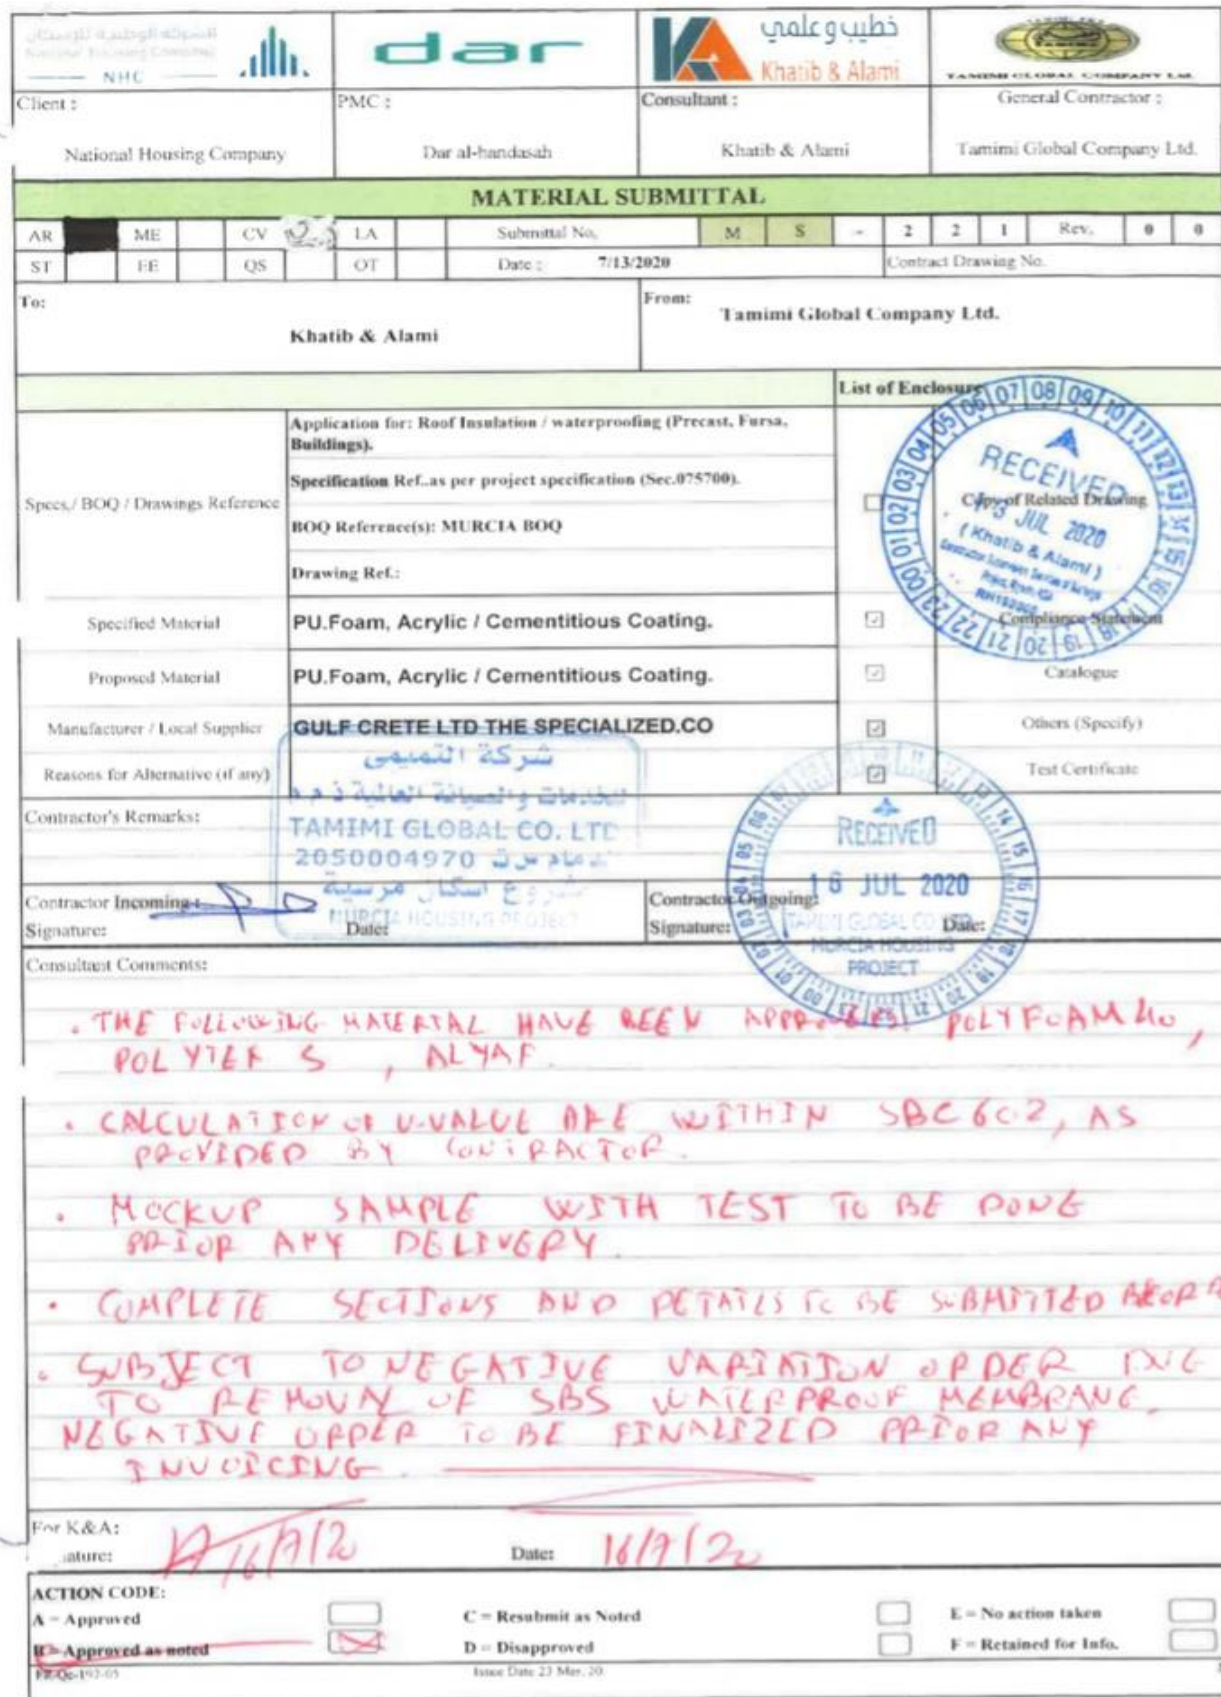 NHC
dar
خطيب وعلمي
Khatib & Alami
TAMIMI
TAMIMI GLOBAL COMPANY Ltd.
Client :
PMC :
Consultant :
General Contractor :
National Housing Company
Dar al-handasah
Khatib & Alami
Tamimi Global Company Ltd.
MATERIAL SUBMITTAL
AR ME CV LA Submittal No. M S - 2 2 1 Rev. 0 0
ST EE QS OT Date : 7/13/2020 Contract Drawing No.
To:
Khatib & Alami
From:
Tamimi Global Company Ltd.
List of Enclosure
Specs./ BOQ / Drawings Reference
Application for: Roof Insulation / waterproofing (Precast, Fursa,
Buildings).
Specification Ref..as per project specification (Sec.075700).
BOQ Reference(s): MURCIA BOQ
Drawing Ref.:
Copy of Related Drawing
RECEIVED
13 JUL 2020
( Khatib & Alami )
Specified Material
PU.Foam, Acrylic / Cementitious Coating.
Compliance Statement
Proposed Material
PU.Foam, Acrylic / Cementitious Coating.
Catalogue
Manufacturer / Local Supplier
GULF CRETE LTD THE SPECIALIZED.CO
Others (Specify)
Reasons for Alternative (if any)
Test Certificate
شركة التميمي
للخدمات والصيانة العالمية ذ م م
TAMIMI GLOBAL CO. LTD
2050004970 الدمام س ت
مشروع اسكان مرسية
MURCIA HOUSING PROJECT
Contractor's Remarks:
RECEIVED
16 JUL 2020
TAMIMI GLOBAL CO LTD
MURCIA HOUSING
PROJECT
Contractor Incoming :
Signature:
Date:
Contractor Outgoing:
Signature:
Date:
Consultant Comments:
. THE FOLLOWING MATERIAL HAVE BEEN APPROVED: POLYFOAM 40,
POLYTEK S , ALYAF.
. CALCULATION OF U-VALUE ARE WITHIN SBC 602, AS
PROVIDED BY CONTRACTOR.
. MOCKUP SAMPLE WITH TEST TO BE DONE
PRIOR ANY DELIVERY.
. COMPLETE SECTIONS AND DETAILS TO BE SUBMITTED
. SUBJECT TO NEGATIVE VARIATION ORDER DUE
TO REMOVAL OF SBS WATERPROOF MEMBRANE.
NEGATIVE ORDER TO BE FINALIZED PRIOR ANY
INVOICING.
For K&A:
ature:
16/7/20
Date:
16/7/20
ACTION CODE:
A = Approved
C = Resubmit as Noted
E = No action taken
B = Approved as noted
D = Disapproved
F = Retained for Info.
FR-Qc-192-05
Issue Date 23 Mar, 20